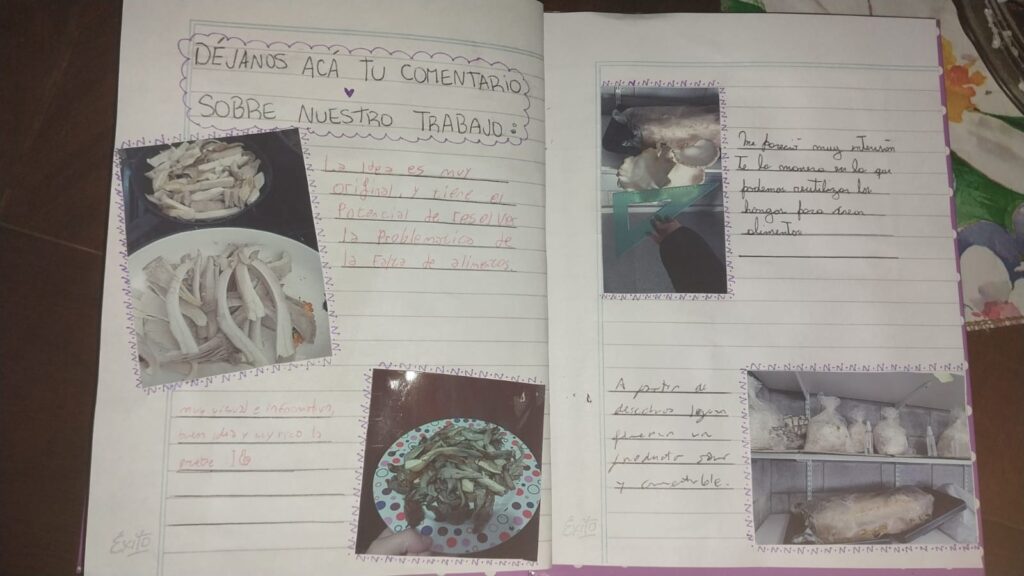 DÉJANOS ACÁ TU COMENTARIO
SOBRE NUESTRO TRABAJO:
La idea es muy
original y tiene el
Potencial de resolver
la Problematica de
la Falta de alimentos.
muy visual e informativo,
buen idea y muy rico lo
probe
Éxito
Me pareció muy interesan
te la manera en la que
podemos reutilizar los
hongos para crear
alimentos
A partir de
desechos logran
generar un
producto sano
y comestible.
Éxito